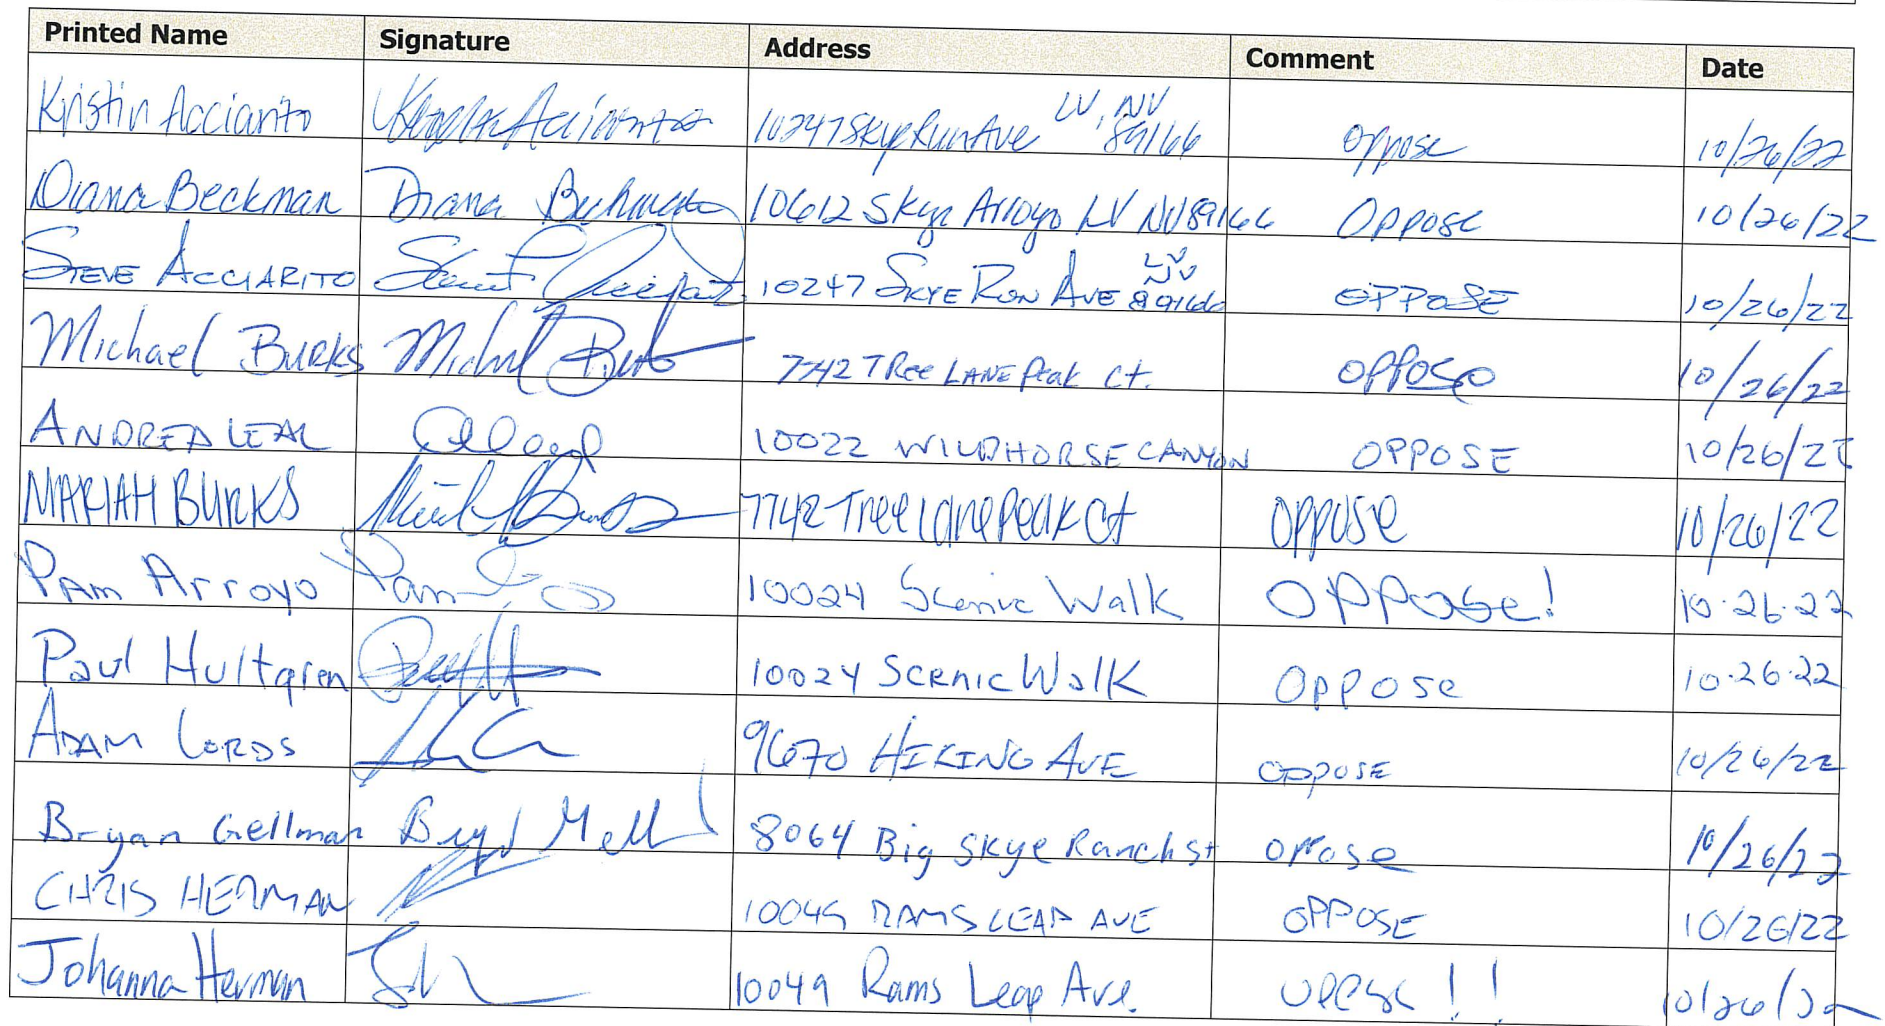 Printed Name Signature Address Comment Date
Kristin Acciarito 10247 Skye Run Ave LV, NV 89166 Oppose 10/26/22
Diana Beckman Diana Beckman 10612 Skye Arroyo LV NV 89166 Oppose 10/26/22
STEVE ACCIARITO 10247 SKYE RUN AVE LV NV 89166 OPPOSE 10/26/22
Michael BURKS 7742 TRee LANE Peak Ct. OPPOSE 10/26/22
ANDREA LEAL 10022 WILDHORSE CANYON OPPOSE 10/26/22
MARIAH BURKS 7742 Tree Lane Peak Ct OPPOSE 10/26/22
PAm Arroyo Pam 10024 Scenic Walk OPPose! 10.26.22
Paul Hultgren 10024 Scenic Walk Oppose 10.26.22
ADAM LORDS 9670 HIKING AVE OPPOSE 10/26/22
Bryan Gellman 8064 Big Skye Ranch St OPose 10/26/22
CHRIS HERMAN 10049 RAMS LEAP AVE OPPOSE 10/26/22
Johanna Herman 10049 Rams Leap Ave. OPPOSE !! 10/26/22